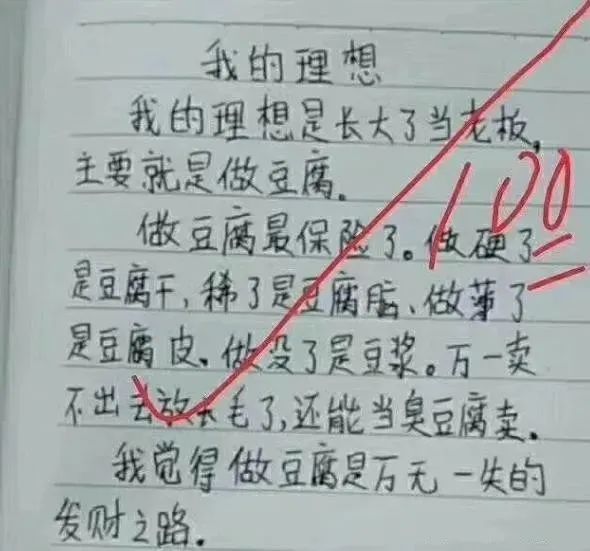 我的理想
我的理想是长大了当老板,
主要就是做豆腐。
做豆腐最保险了。做硬了
是豆腐干,稀了是豆腐脑、做薄了
是豆腐皮、做没了是豆浆。万一卖
不出去放长毛了,还能当臭豆腐卖。
我觉得做豆腐是万无一失的
发财之路。
100